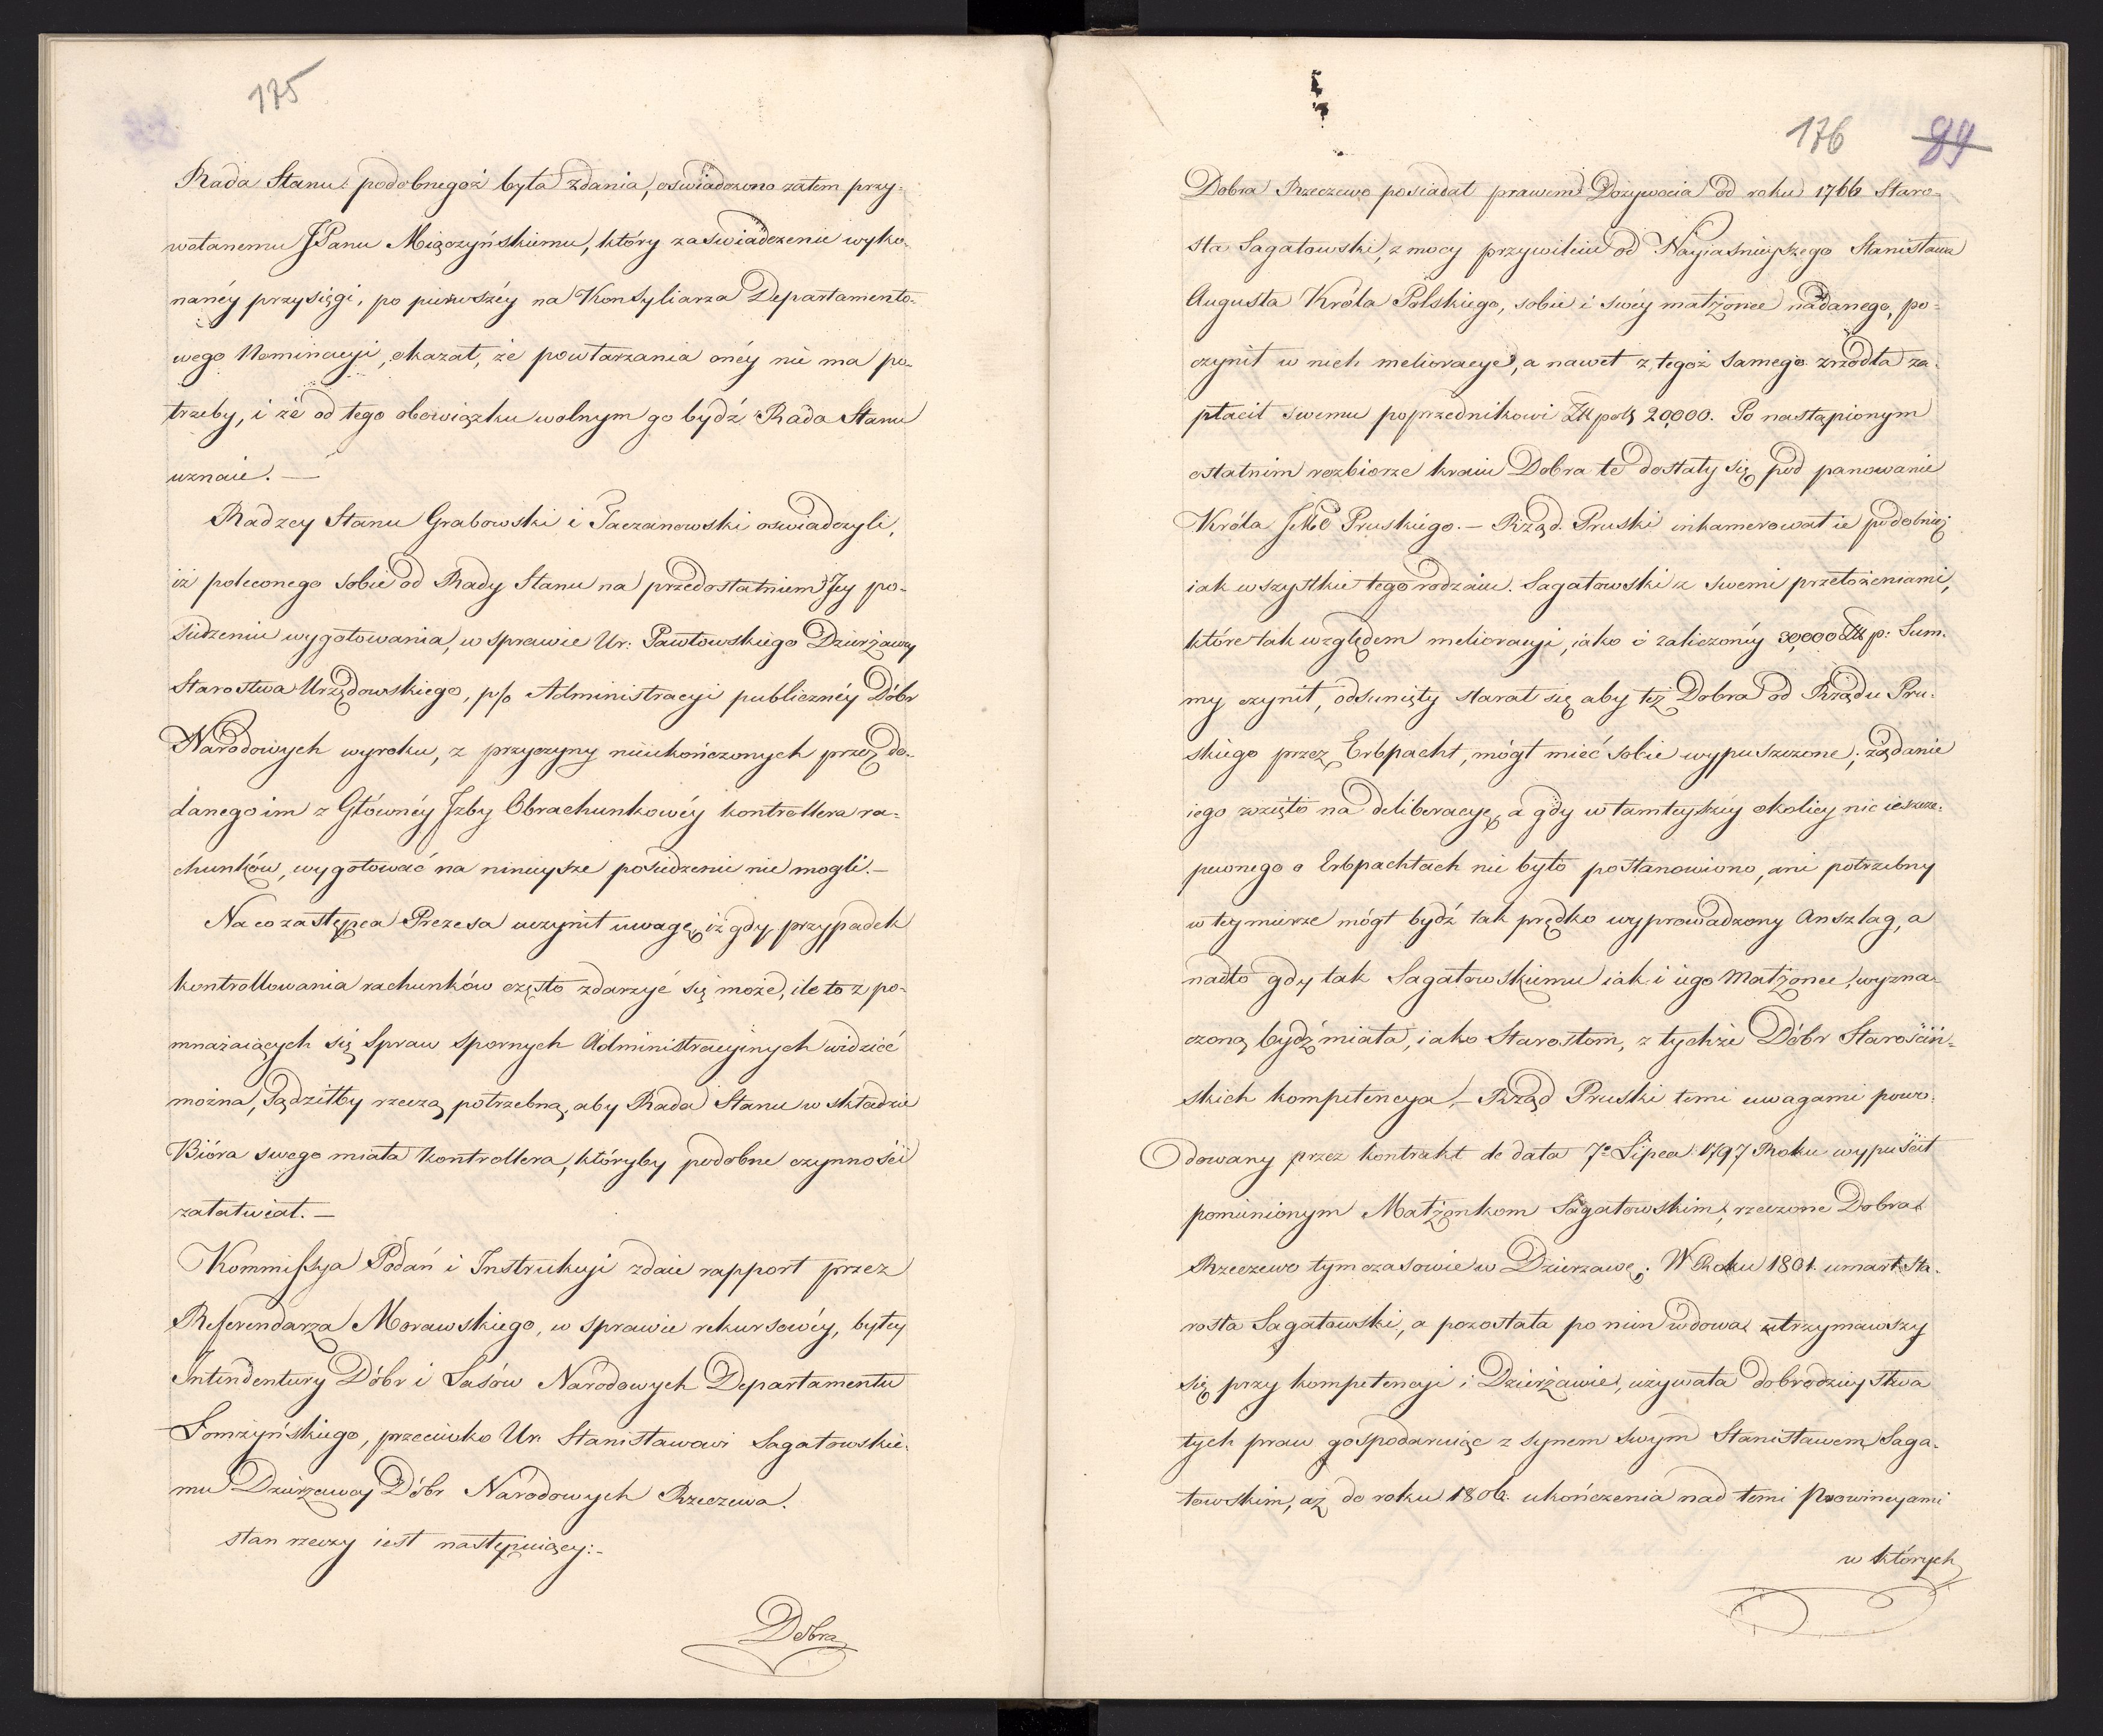 175
Rada Stanu podobnegoż była zdania, oswiadczono zatem przy-
wołanemu JPanu Miączyńskiemu, który zaświadczenie wyko-
nanéy przysięgi, po pierwszéy na Konsyliarza Departamento-
wego Nominacyi, okazał, że powtarzania onéy nie ma po-
trzeby, i że od tego obowiązku wolnym go bydź Rada Stanu
uznaie. —
Radzcy Stanu Grabowski i Taczanowski oswiadczyli,
iż poleconego sobie od Rady Stanu na przedostatniem Jey po-
siedzeniu wygotowania, w sprawie Ur: Pawłowskiego Dzierżawcy
Starostwa Urzędowskiego, p/o Administracyi publicznéy Dóbr
Narodowych wyroku, z przyczyny nieukończonych przez do-
danego im z Główney Jzby Obrachunkowéy kontrollera ra-
chunków, wygotować na ninieysze posiedzenie nie mogli. —
Na co zastępca Prezesa uczynił uwagę, iż gdy przypadek
kontrollowania rachunków często zdarzyć się może, ile to z po-
mnażaiących się Spraw spornych Administracyinych widzieć
można, Sądziłby rzeczą potrzebną, aby Rada Stanu w składzie
Bióra swego miała Kontrollera, któryby podobne czynności
załatwiał. —
Kommissya Podań i Instrukcyi zdaie rapport przez
Referendarza Morawskiego, w sprawie rekursowéy, byłey
Intendentury Dóbr i Lasów Narodowych Departamentu
Łomżyńskiego, przeciwko Ur. Stanisławowi Sagatowskie-
mu Dzierżawcy Dóbr Narodowych Rzeczewa.
stan rzeczy iest następuiący: -
Dobra
176 89
Dobra Rzeczewo posiadał prawem Dożywocia od roku 1766 Staro-
sta Sagatowski, z mocy przywileiu od Nayiaśnieyszego Stanisława
Augusta Króla Polskiego, sobie i swéy małżonce nadanego, po-
czynił w nich melioracye, a nawet z tegoż samego zrzódła za-
płacił swemu poprzednikowi Złł pols 20,000. Po nastąpionym
ostatnim rozbiorze kraiu Dobra te dostały się pod panowanie
Króla JMC Pruskiego. — Rząd Pruski inkamerował ie podobnież
iak wszystkie tego rodzaiu. Sagatowski z swemi przełożeniami,
które tak względem melioracyi, iako i zaliczonéy 30,000 Złł p: Sum-
my czynił, odsunięty starał się aby też Dobra od Rządu Pru-
skiego przez Erbpacht, mógł mieć sobie wypuszczone; żądanie
iego wzięto na deliberacyę, a gdy w tamteyszéy okolicy nic ieszcze
pewnego o Erbpachtach nie było postanowiono, ani potrzebny
w tey mierze mógł bydź tak prędko wyprowadzony Anszlag, a
nadto gdy tak Sagatowskiemu iak i iego Małżonce, wyzna-
czoną bydź miała, iako Starostom, z tychże Dóbr Starościń-
skich kompetencya, — Rząd Pruski temi uwagami powo-
dowany przez kontrakt de data 7º Lipca 1797 Roku wypuścił
pomienionym Małżonkom Sagatowskim, rzeczone Dobra
Rzeczewo tymczasowie w Dzierzawę; W Roku 1801. umarł Sta-
rosta Sagatowski, a pozostała po nim wdowa utrzymawszy
się przy kompetencyi i Dzierżawie, używała dobrodzieystwa
tych praw gospodaruiąc z synem swym Stanisławem Saga-
towskim, aż do roku 1806. ukończenia nad temi Prowincyami
w których